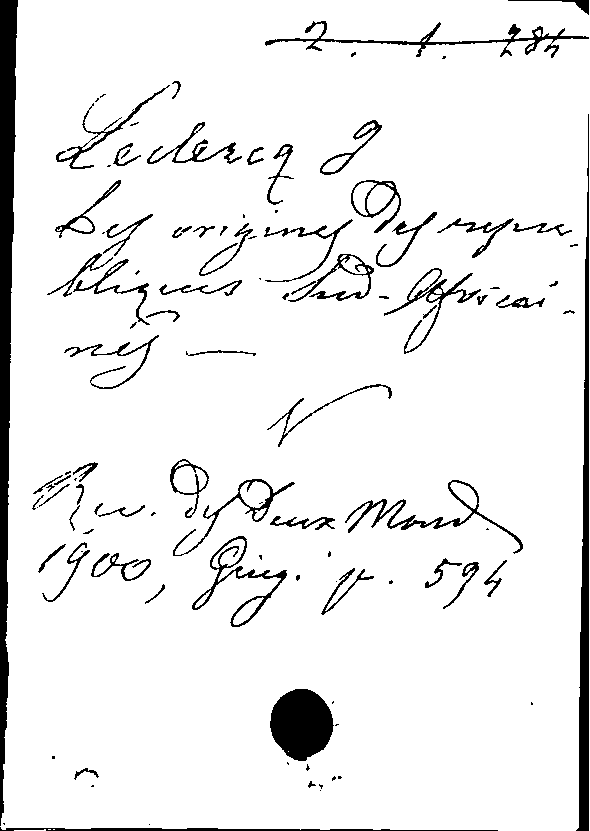 2. 1. 284
Leclercq J
Les origines des repu-
bliques Sud-Africai-
nes —
V
Rev. des Deux Mond.
1900, Giug. p. 594